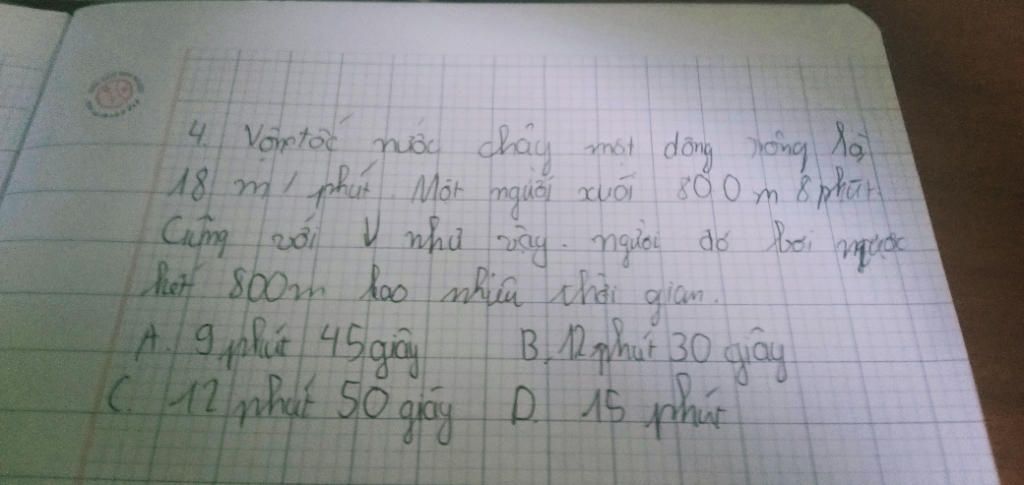 4. Vận tốc nước chảy một dòng sông là
18 m / phút. Một người xuôi 800 m 8 phút
Cũng với V như vậy. người đó bơi ngược
hết 800m bao nhiêu thời gian.
A. 9 phút 45 giây B. 12 phút 30 giây
C. 12 phút 50 giây D. 15 phút